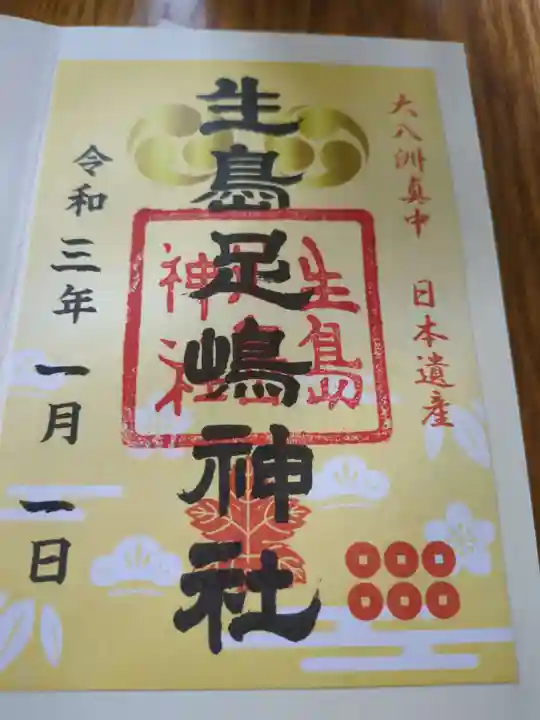 大八洲真中 日本遺産
生島足嶋神社
生島
足島
神社
令和三年一月一日